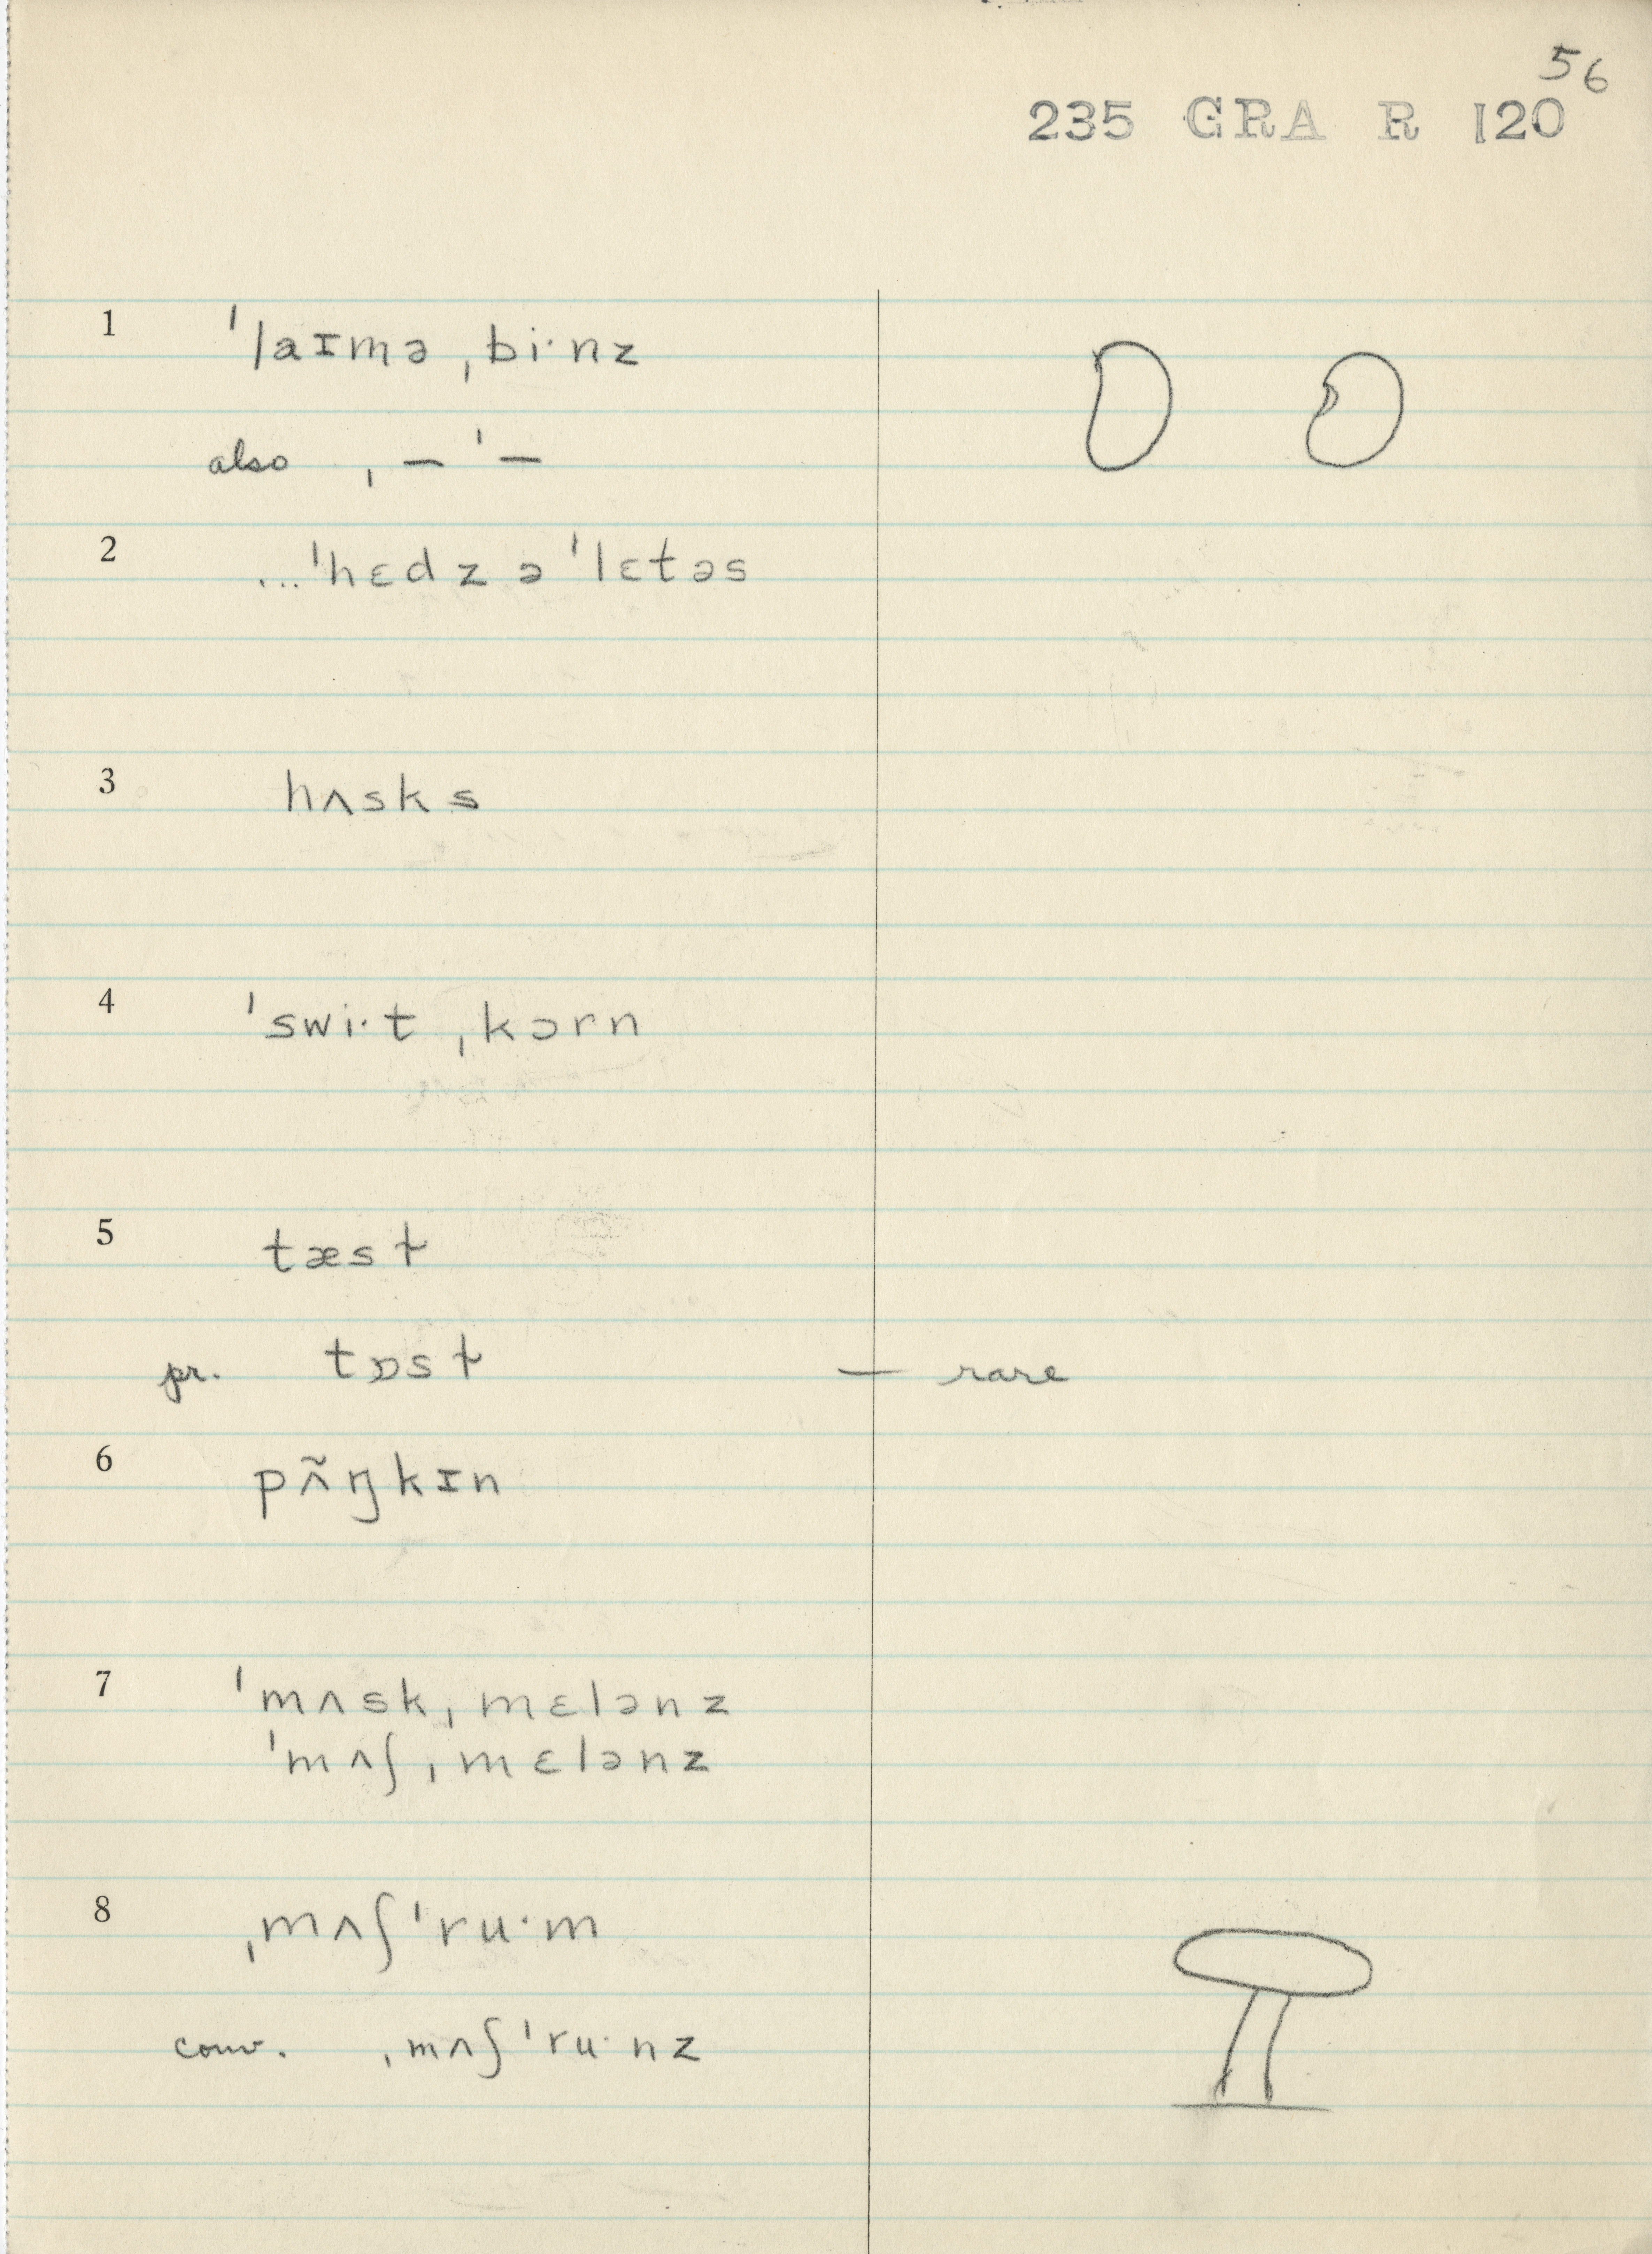 56
235 GRA R 120
1 ˈlaɪmə ˌbi·nz
also ˌ— ˈ—
2 ...ˈhɛdz ə ˈlɛtəs
3 hʌsks
4 ˈswi·t ˌkɔrn
5 tæsɫ
pr. tɒsɫ — rare
6 pʌ̃ŋkɪn
7 ˈmʌskˌmɛlənz
ˈmʌʃˌmɛlənz
8 ˌmʌʃˈru·m
conv. ˌmʌʃˈru·nz